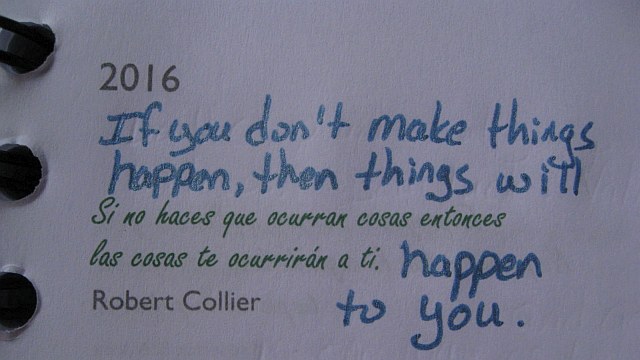 2016
If you don't make things
happen, then things will
Si no haces que ocurran cosas entonces
las cosas te ocurrirán a ti.
happen
Robert Collier
to you.